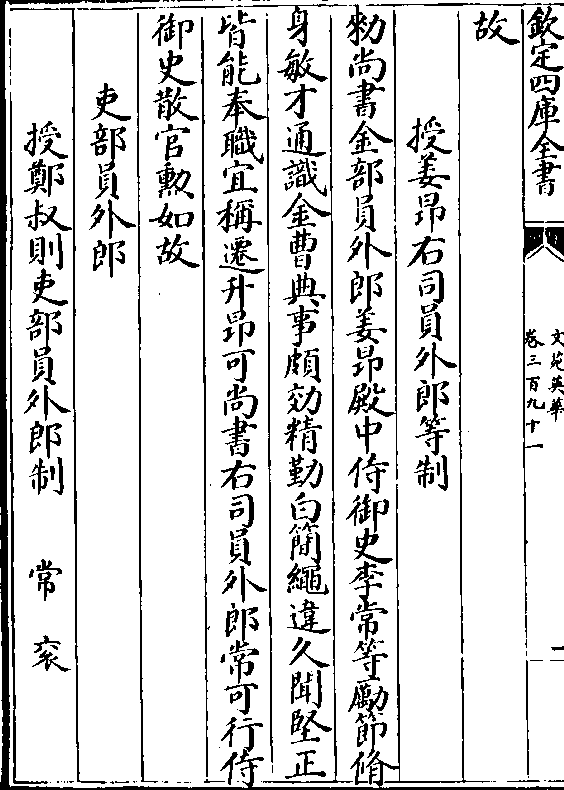 欽定四庫全書
文苑英華
卷三百九十一
一
故
授姜昂右司員外郎等制
勑尚書金部員外郎姜昂殿中侍御史李常等勵節脩
身敏才通識金曹典事頗効精勤白簡繩違久聞堅正
皆能奉職宜稱遷升昂可尚書右司員外郎常可行侍
御史散官勲如故
吏部員外郎
授鄭叔則吏部員外郎制 常衮